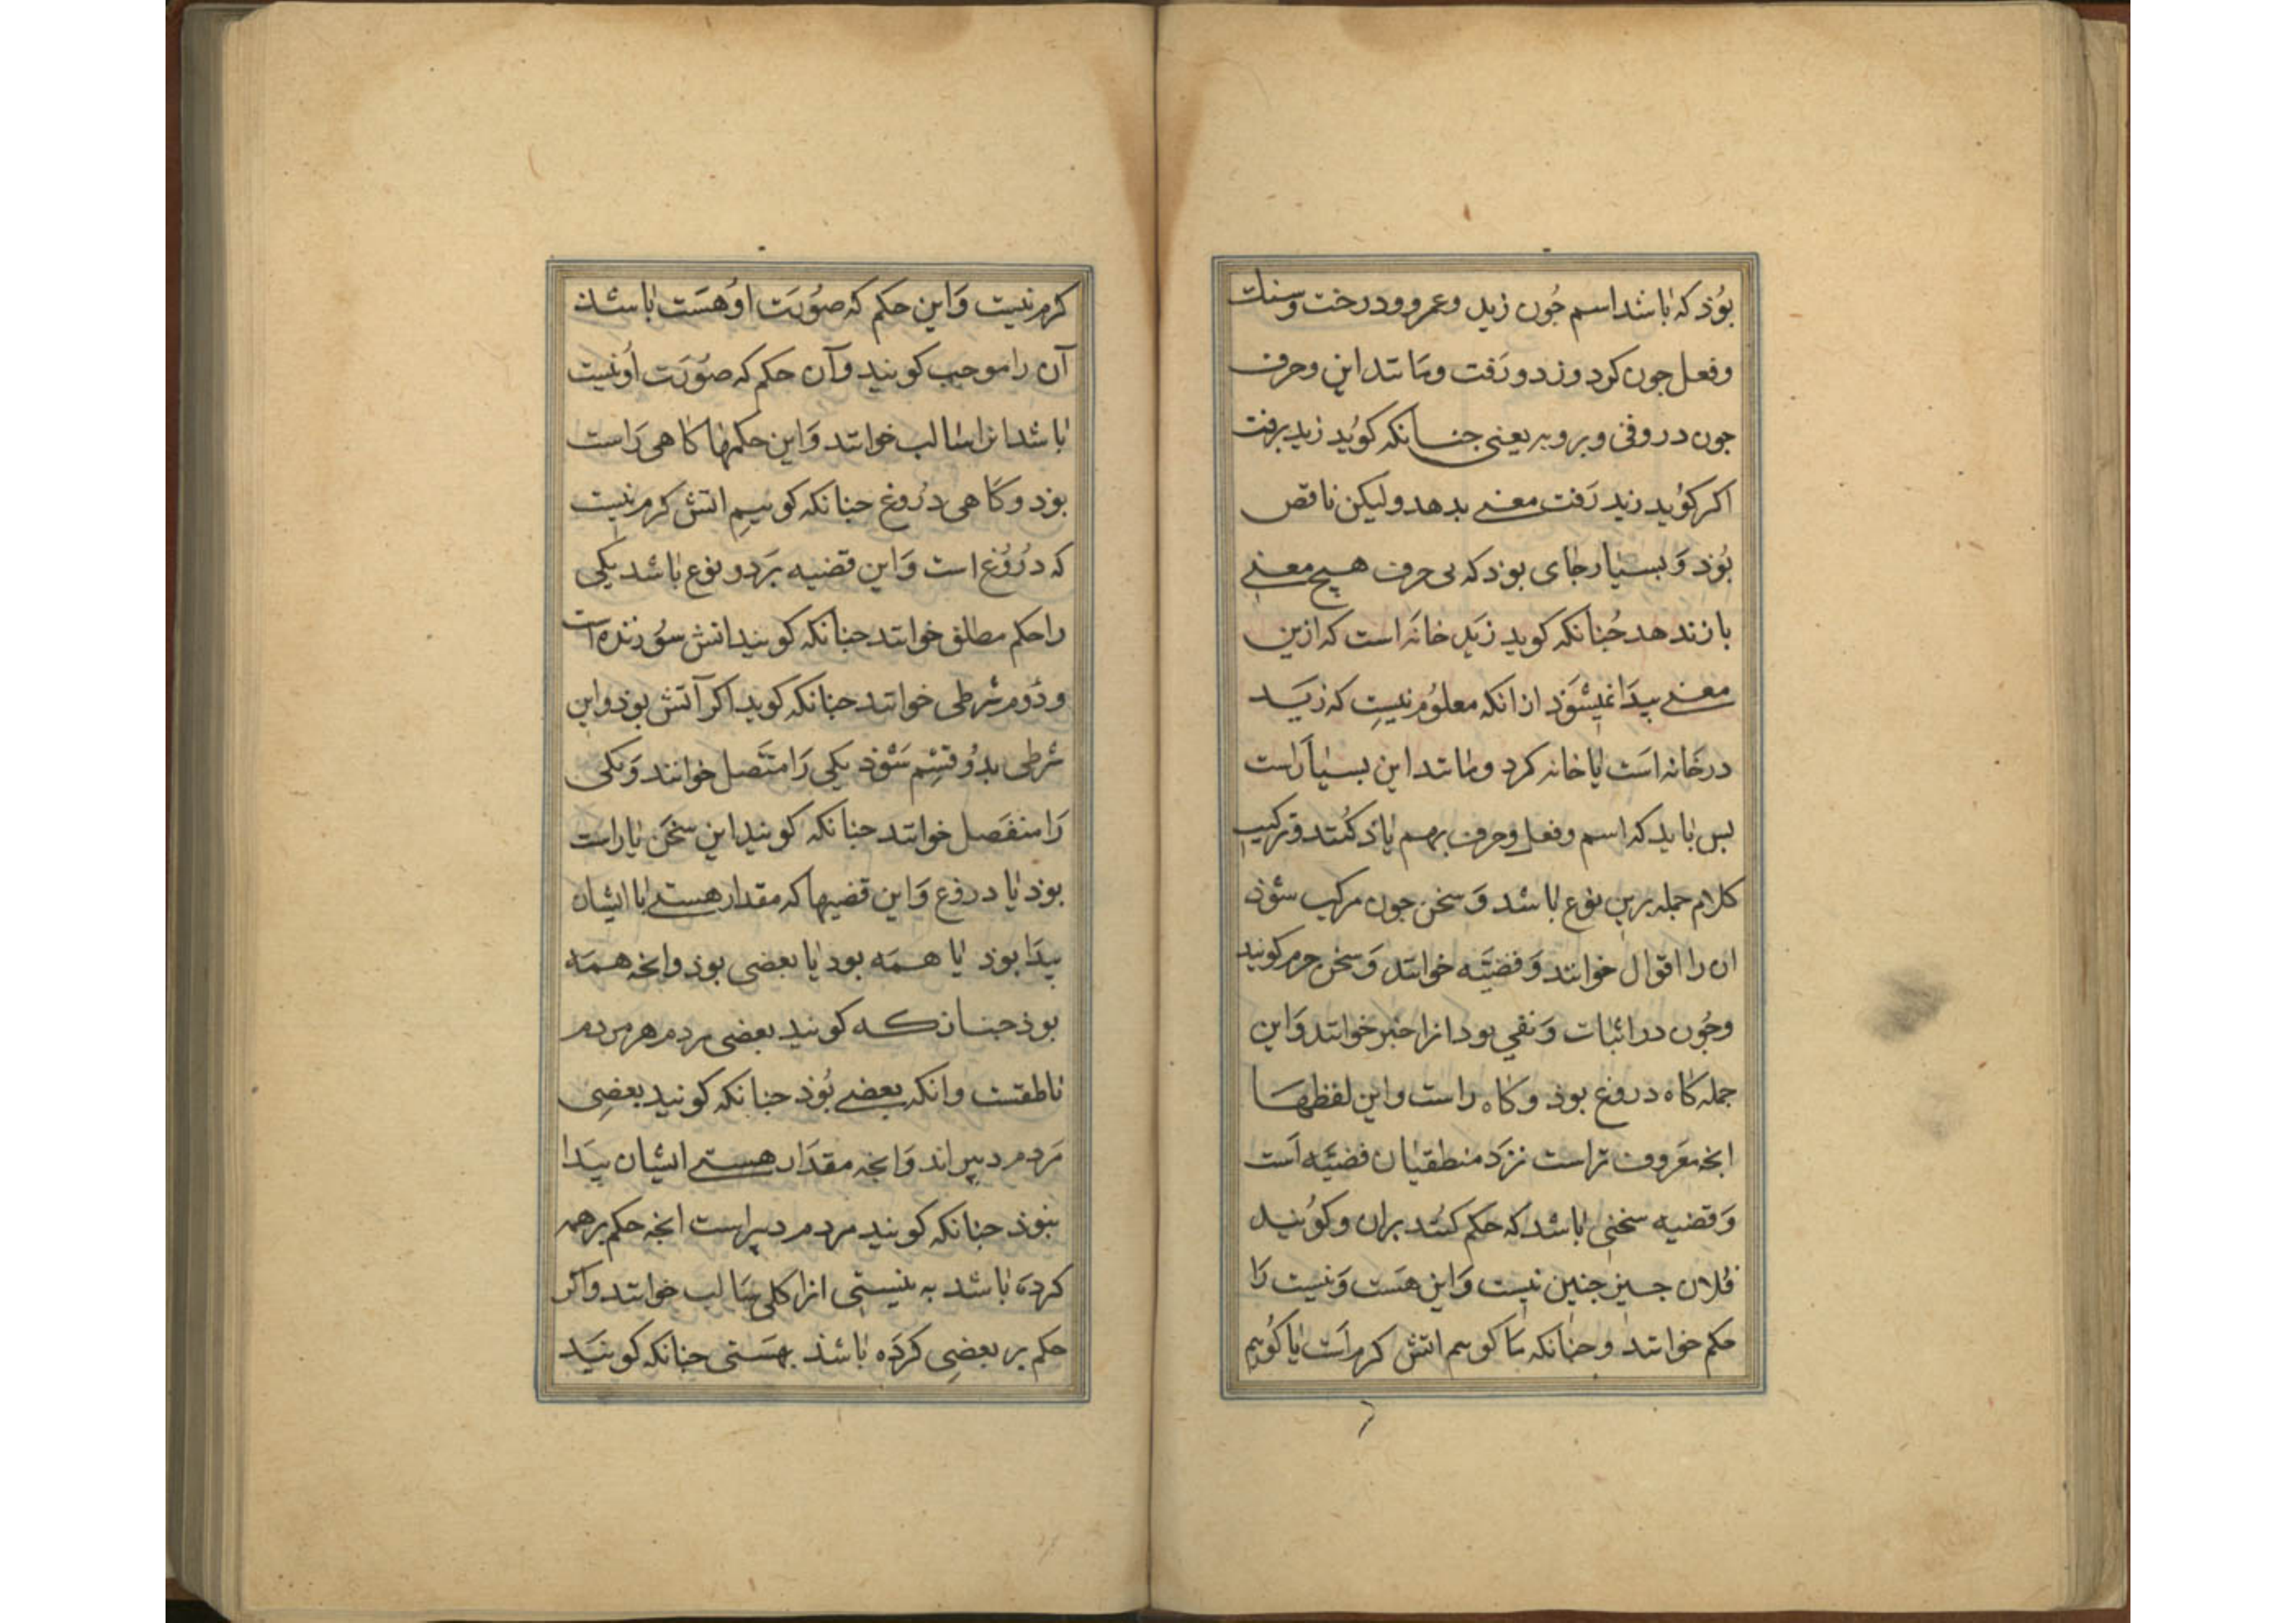 بوُذ که باشد اسم جُون زید وعمرو ودرخت وسنك
وفعل جون کرد وزد ورَفت ومانند این وحرف
جون در وفی وبر وبه یعنی جنانکه کوُید زید برفت
اکر کوُید زید رَفت معنی بدهد ولیکن ناقص
بُوذ وَبسیار جای بوذ که بی حرف هیچ معنی
باز ندهد جُنانکه کوید زَید خانَه است که ازین
معنی بیدَا نمیشَوَذ از انکه معلوُم نیست که زیَد
در خَانه اسَت یا خانه کرد ومانند این بسیاَر است
بس باید که اسم وفعل وحرف بهم یاذ کُنند وترکیب
کلام جمله برین نوع باشد وَسخن جون مرکب شوُذ
ان را اقوال خوانند وَقضیَه خوانند وَسخن جزم کویند
وجُون در اثبات وَنفی بود انرا خبر خوانند وَاین
جمله کاه دروغ بوذ وکاه راست واین لفظها
انجه معَروف تر است نزَد منطقیان قضیَه اَست
وَقضیه سخنی باشد که حکم کنُند بران وکوُیند
فُلان جیز جنین نیست وَاین هسَت وَنیست رَا
حکم خوانند وجنانکه مَا کویم اتش کرم اَست یا کوُیم
کرم نیست وَاین حکم که صوُرَت اوُ هسَت باشذ
آن را موجب کویند وآن حکم که صوُرَت اوُ نیست
باشد انرا سالب خوانند وَاین حکمها کاهی رَاست
بوذ وکاهی درُوغ جنانکه کوییم اتش کرم نیست
که درُوُغ است وَاین قضیه بَر دو نوع باشد یکی
را حکم مطلق خوانند جنانکه کویند اتش سوُزنده است
ودُوم شرطی خوانند جنانکه کوید اکر آتش بوذ واین
شرطی بدُو قسِم شَوذ یکی رَا متصَّل خوانند وَیکی
رَا منفصَل خوانند جنانکه کویند این سخَن یا راست
بوذ یا دروغ وَاین قضیها که مقدار هستی با ایشان
بیدَا بوذ یا همَه بود یا بعضی بوذ وانجه همَه
بوذ جنانکه کویند بعضی مردم هر مردم
ناطقست وانکه بعضی بُوذ جنانکه کویند بعضِی
مَردم دبیر اند وَانجه مقدَار هستی ایشان بیَدا
نبوذ جنانکه کویند مردم دبیر است انجه حکم بر همه
کردَه باشد به نیستی انرا کلی سَالب خوانند واکر
حکم بر بعضِی کردَه باشذ بهسَتی جنانکه کوینَد